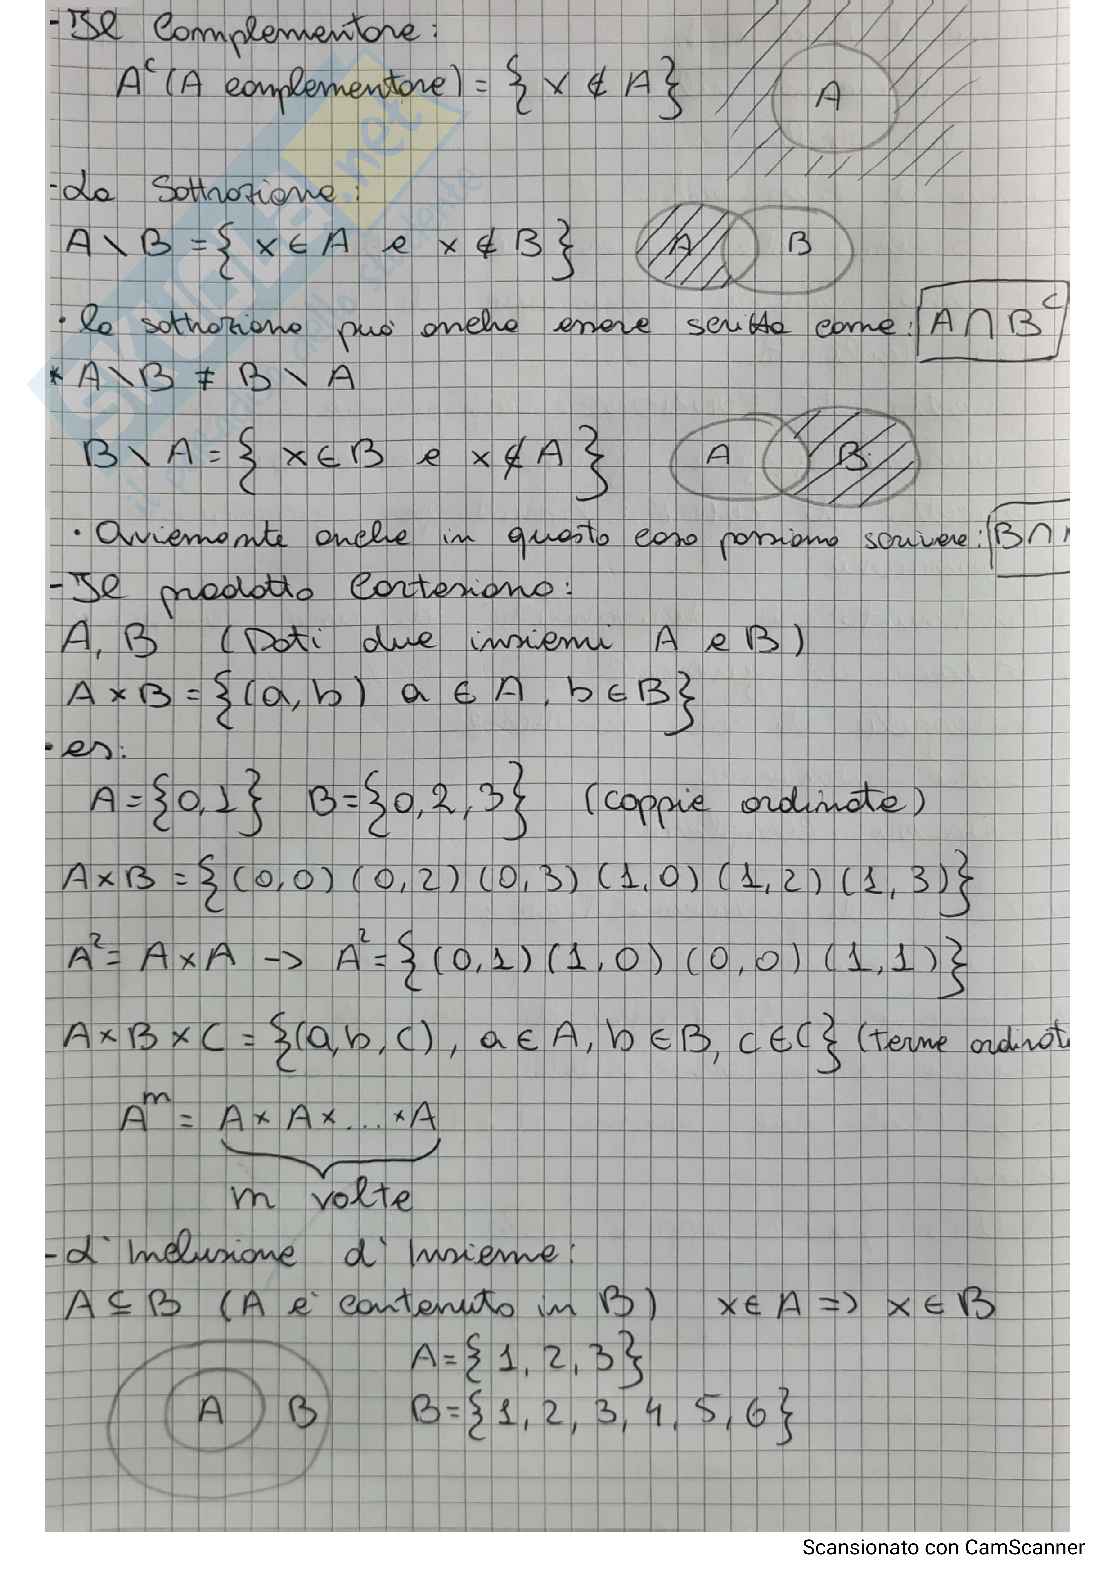 - Il Complementare:
Aᶜ (A complementare) = { x ∉ A }
A
- La Sottrazione:
A \ B = { x ∈ A e x ∉ B }
A B
• la sottrazione può anche essere scritta come: A ∩ Bᶜ
* A \ B ≠ B \ A
B \ A = { x ∈ B e x ∉ A }
A B
• Ovviamente anche in questo caso possiamo scrivere: B ∩
- Il prodotto Cartesiano:
A, B (Dati due insiemi A e B)
A × B = {(a, b) a ∈ A, b ∈ B}
• es:
A = {0, 1} B = {0, 2, 3} (coppie ordinate)
A × B = { (0,0) (0,2) (0,3) (1,0) (1,2) (1,3) }
A² = A × A -> A² = { (0,1) (1,0) (0,0) (1,1) }
A × B × C = {(a, b, c), a ∈ A, b ∈ B, c ∈ C} (terne ordinat
Aᵐ = A × A × ... × A
m volte
- L' Inclusione d' Insieme:
A ⊆ B (A è contenuto in B) x ∈ A => x ∈ B
A = { 1, 2, 3 }
A B B = { 1, 2, 3, 4, 5, 6 }
SKUOLA.net
Scansionato con CamScanner